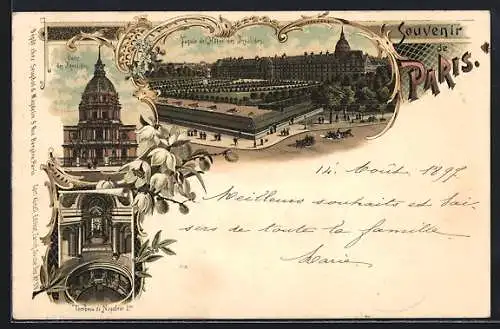 Souvenir
de
PARIS.
Façade de l'Hôtel des Invalides.
Dôme
des Invalides.
14. Août. 1897.
Meilleurs souhaits et bai-
sers de toute la famille
Marie.
Tombeau de Napoléon Ier